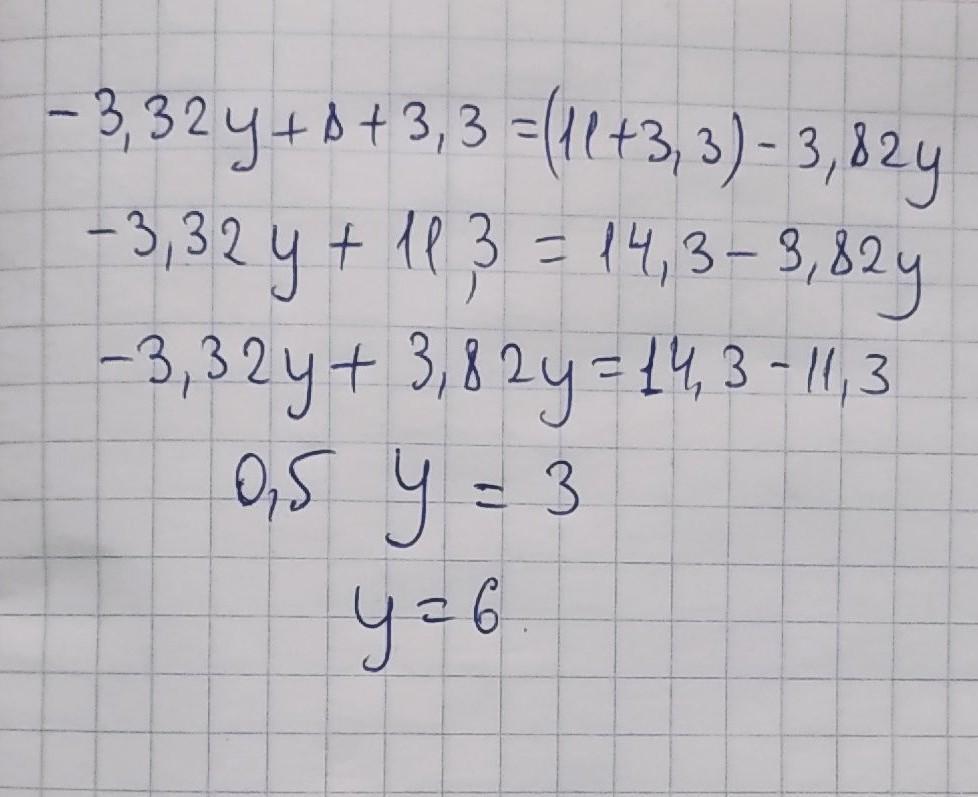 -3,32y+8+3,3=(11+3,3)-3,82y
-3,32y+11,3=14,3-3,82y
-3,32y+3,82y=14,3-11,3
0,5 y=3
y=6